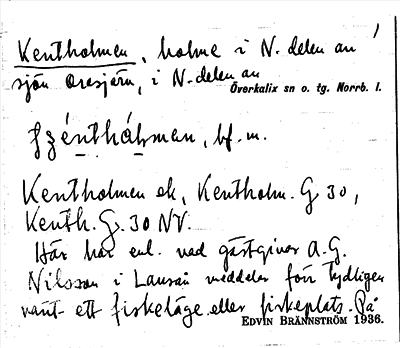 Kentholmen, holme i N. delen av
sjön Oresjärn, i N-delen av
Överkalix sn o. tg. Norrb. l.
bf. m.
Kentholmen ek, Kentholm. G 30,
Kenth. G. 30 NV.
Här har enl. vad gästgivar A. G.
Nilsson i Lansån meddelar förr tydligen
varit ett fiskeläge eller fiskeplats. På
EDVIN BRÄNNSTRÖM 1936.